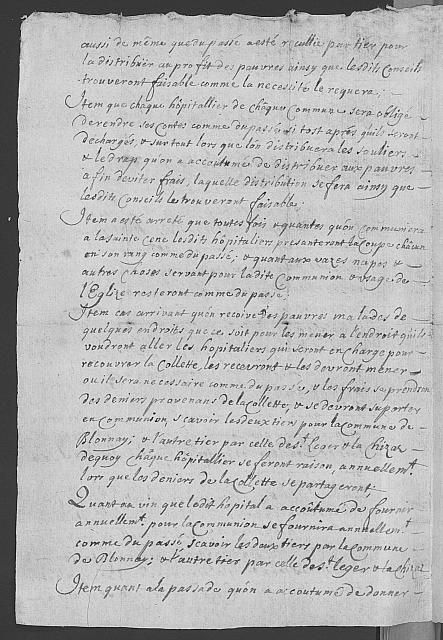 aussi de même que du passé a esté recullie par tier pour
la distribuer au profit des pauvres ainsy que lesdits Conseils
trouveront faisable comme la necessité le requera;
Item que châque hôpitallier de châque Commune sera obligé
de rendre ses contes comme du passé si tost aprés quils seront
déchargés, & surtout lors que lon distribuera les souliers
& le drap quon a accoutumé de distribuer aux pauvres
afin deviter frais, laquelle distribution se fera ainsy que
lesdits Conseils le trouveront faisable;
Item a esté arreté que toutes fois & quantes quon communiera
a la sainte cene lesdits hôpitaliers presenteront la Coupe châcun
en son rang comme du passé; & quant aux vazes napes &
autres choses servant pour ladite Communion & usage de
l'Eglize resteront comme du passé;
Item cas arrivant quon recoive des pauvres malades de
quelques endroits que ce soit pour les mener a l'endroit quils
voudront aller les hôpitaliers qui seront en charge pour
recouvrer la Collette, les recevront & les devront mener
ou il sera necessaire comme du passé, & les frais se prendront
des deniers provenans de la Collette, & se devront suporter
en Communion, scavoir les deux tiers pour la Commune de
Blonnay; & l'autre tier par celle de St. Leger & la Chizaz
dequoy châque hôpitallier se feront raison, annuellemt.
lors que les deniers de la Collette se partageront;
Quant au vin que ledit hôpital a accoutumé de fournir
annuellemt. pour la Communion se fournira annuellemt.
comme du passé scavoir les deux tiers par la Commune
de Blonnay; & l'autre tier par celle de St. Leger & la Chizaz
Item quant a la passade quon a accoutumé de donner